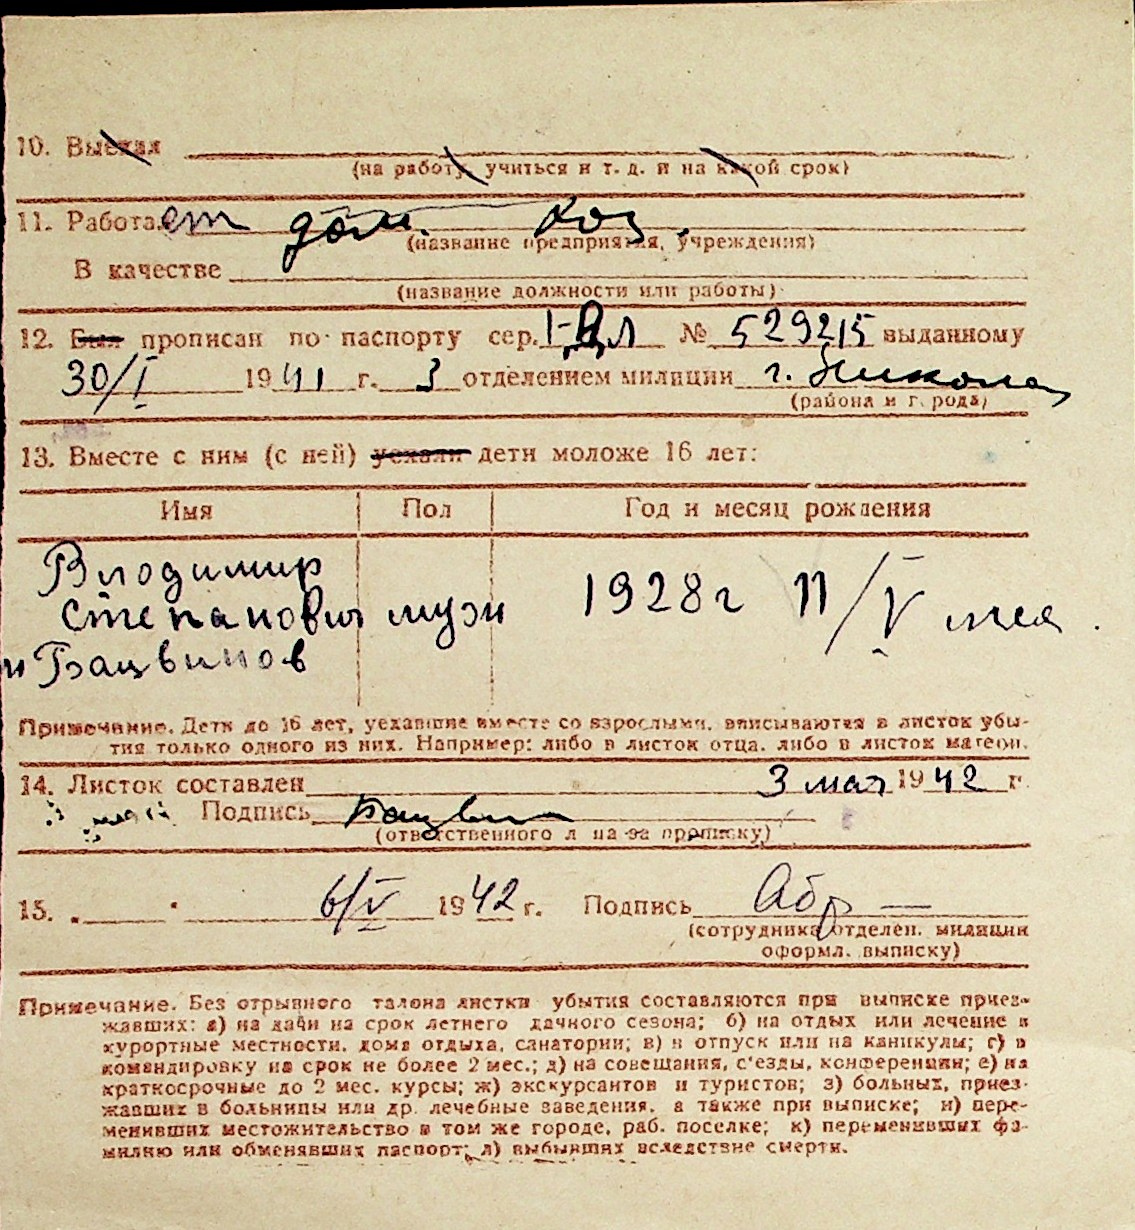 10. Выехал
(на работу, учиться и т. д. и на какой срок)
11. Работает дом. хоз.
(название предприятия, учреждения)
В качестве
(название должности или работы)
12. Был прописан по паспорту сер. № 529215 выданному
30/I 1941 г. 3 отделением милиции г.
(района и города)
13. Вместе с ним (с ней) уехали дети моложе 16 лет:
Имя Пол Год и месяц рождения
Влодимир
Степанович муж 1928 г 11/V мая.
Бацвинов
Примечание. Дети до 16 лет, уехавшие вместе со взрослыми, вписываются в листок убы-
тия только одного из них. Например: либо в листок отца, либо в листок матери.
14. Листок составлен 3 мая 1942 г.
Подпись
(ответственного лица за прописку)
15. 6/V 1942 г. Подпись
(сотрудника отделен. милиции
оформл. выписку)
Примечание. Без отрывного талона листки убытия составляются при выписке приез-
жавших: а) на дачи на срок летнего дачного сезона; б) на отдых или лечение в
курортные местности, дома отдыха, санатории; в) в отпуск или на каникулы; г) в
командировку на срок не более 2 мес.; д) на совещания, с'езды, конференции; е) на
краткосрочные до 2 мес. курсы; ж) экскурсантов и туристов; з) больных, приез-
жавших в больницы или др. лечебные заведения, а также при выписке; и) пере-
менивших местожительство в том же городе, раб. поселке; к) переменивших фа-
милию или обменявших паспорт; л) выбывших вследствие смерти.